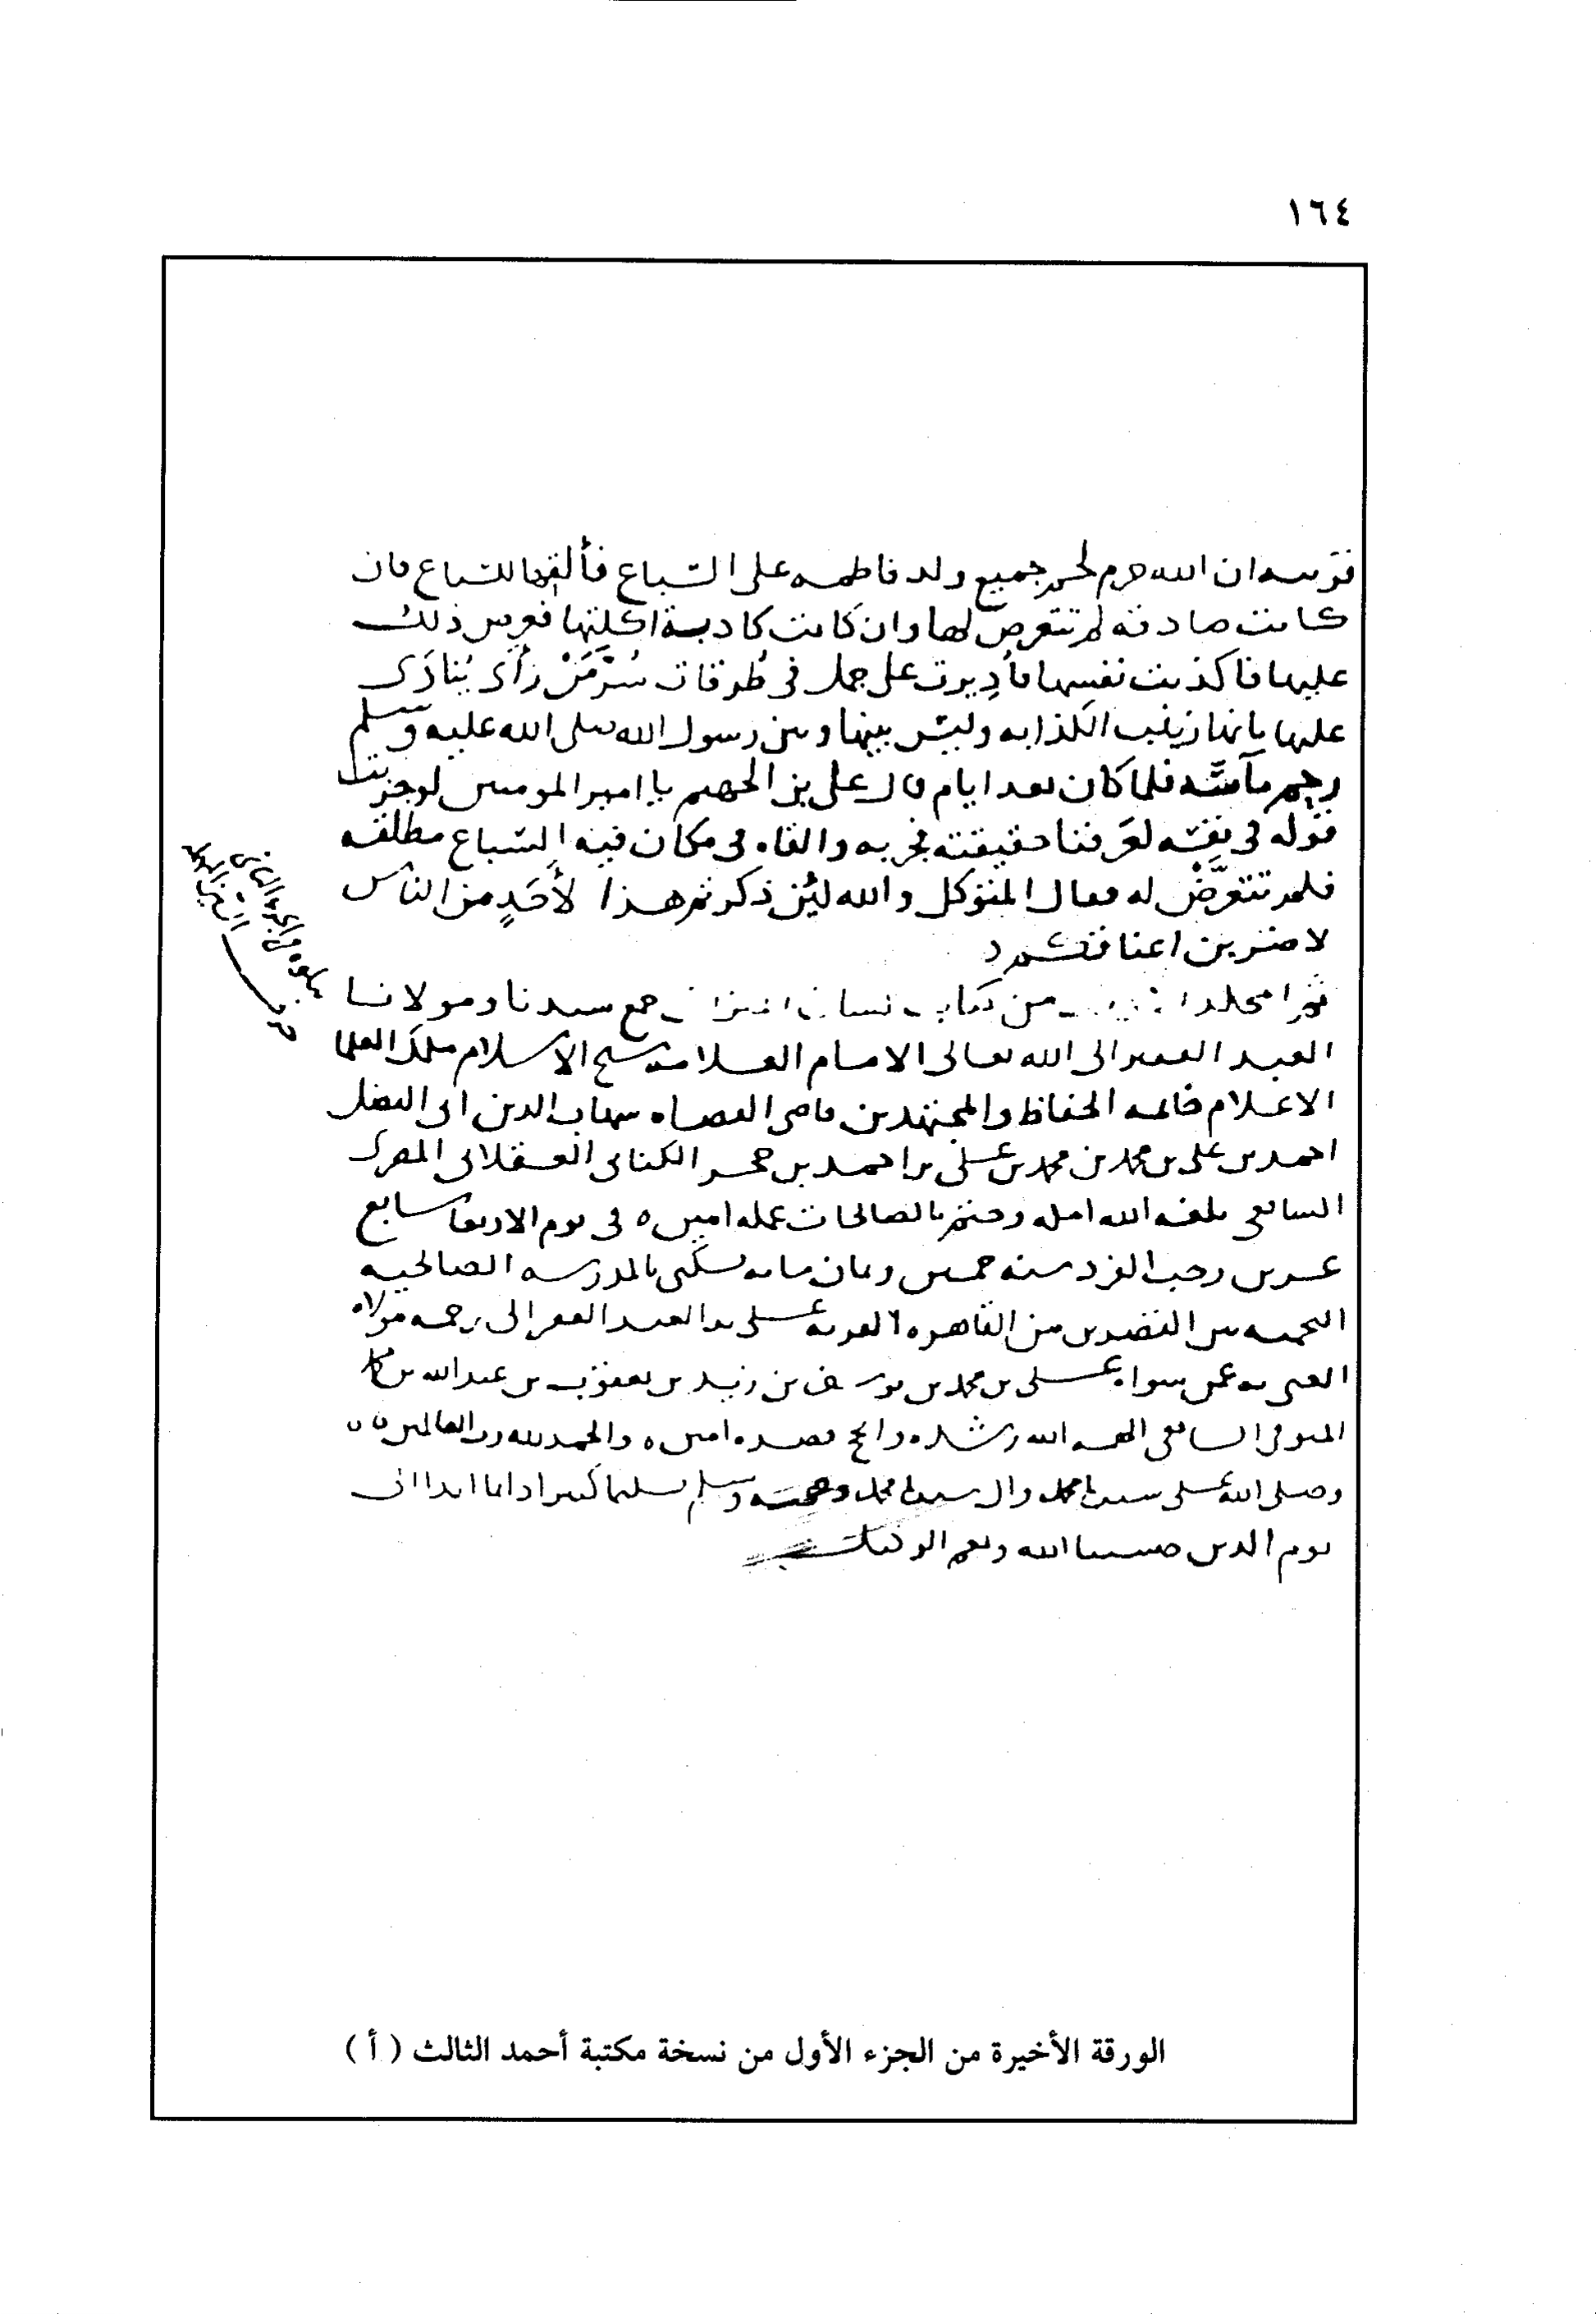 ١٦٤
ان الله حرم لحم جميع ولد فاطمه على السباع فألقها للسباع فان
كانت صادقه لم تتعرض لها وان كانت كاذبة اكلتها فعرض ذلك
عليها فاكذبت نفسها فأُديرت على جمل في طُرقات سُرَّ مَنْ رأى يُنادَى
عليها بانها زينب الكذابه وليس بينها وبين رسول الله صلى الله عليه وسلم
رحم ماسّه فلما كان بعد ايام قال على بن الجهم يا امير المومنين لو جربت
قوله في نفسه لعرفنا حقيقته فجربه والقاه في مكان فيه السباع مطلقه
فلم تتعرَّضْ له فقال المتوكل والله لئن ذكرتم هذا لأحَدٍ من الناس
لاضربن اعناقكم
من كتاب لسان الميزان جمع سيدنا ومولانا
العبد الفقير الى الله تعالى الامام العلامة شيخ الاسلام ملك العلما
الاعلام خاتمه الحفاظ والمجتهدين قاضى القضاه شهاب الدين ابى الفضل
احمد بن على بن محمد بن محمد بن على بن احمد بن حجر الكنانى العسقلانى المصرى
الشافعى بلغه الله امله وختم بالصالحات عمله امين ه في يوم الاربعا سابع
عشرين رجب الفرد سنه خمس وثمان مايه بالمدرسه الصالحيه
النجميه بين القصرين من القاهره المعزيه على يد العبد الفقير الى رحمه مولاه
الغنى به عمن سواه على بن محمد بن يوسف بن زيد بن يعقوب بن عبد الله بن
الشافعى الهمه الله رشده قصده امين ه والحمد لله رب العالمين
وصلى الله على سيدنا محمد وال سيدنا محمد وصحبه وسلم تسليما كثيرا دايما ابدا الى
يوم الدين حسبنا الله ونعم الوكيل
الورقة الأخيرة من الجزء الأول من نسخة مكتبة أحمد الثالث ( أ )